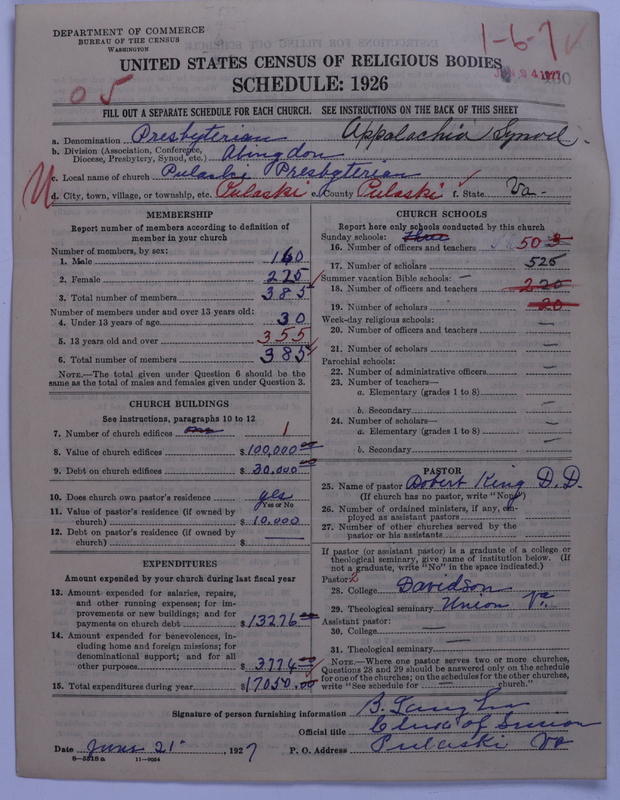 DEPARTMENT OF COMMERCE
BUREAU OF THE CENSUS
WASHINGTON
1-6-7
UNITED STATES CENSUS OF RELIGIOUS BODIES
SCHEDULE: 1926
05
FILL OUT A SEPARATE SCHEDULE FOR EACH CHURCH. SEE INSTRUCTIONS ON THE BACK OF THIS SHEET
a. Denomination Presbyterian Appalachia Synod.
b. Division (Association, Conference, Diocese, Presbytery, Synod, etc.) Abingdon
c. Local name of church Pulaski Presbyterian
d. City, town, village, or township, etc. Pulaski e. County Pulaski f. State Va.
MEMBERSHIP
Report number of members according to definition of
member in your church
Number of members, by sex:
1. Male 160
2. Female 225
3. Total number of members 385
Number of members under and over 13 years old:
4. Under 13 years of age 30
5. 13 years old and over 355
6. Total number of members 385
NOTE.—The total given under Question 6 should be the
same as the total of males and females given under Question 3.
CHURCH BUILDINGS
See instructions, paragraphs 10 to 12
7. Number of church edifices one 1
8. Value of church edifices $100,000.00
9. Debt on church edifices $30.000.00
10. Does church own pastor's residence yes
Yes or No
11. Value of pastor's residence (if owned by
church) $10.000
12. Debt on pastor's residence (if owned by
church) $ —
EXPENDITURES
Amount expended by your church during last fiscal year
13. Amount expended for salaries, repairs,
and other running expenses; for im-
provements or new buildings; and for
payments on church debt $13276.00
14. Amount expended for benevolences, in-
cluding home and foreign missions; for
denominational support; and for all
other purposes 3774.00
15. Total expenditures during year $17050.00
CHURCH SCHOOLS
Report here only schools conducted by this church
Sunday schools: Three
16. Number of officers and teachers 50
17. Number of scholars 525
Summer vacation Bible schools: —
18. Number of officers and teachers 220
19. Number of scholars 20
Week-day religious schools:
20. Number of officers and teachers —
21. Number of scholars —
Parochial schools:
22. Number of administrative officers —
23. Number of teachers—
a. Elementary (grades 1 to 8) —
b. Secondary —
24. Number of scholars—
a. Elementary (grades 1 to 8) —
b. Secondary —
PASTOR
25. Name of pastor Robert King D.D.
(If church has no pastor, write "None")
26. Number of ordained ministers, if any, em-
ployed as assistant pastors
27. Number of other churches served by the
pastor or his assistants
If pastor (or assistant pastor) is a graduate of a college or
theological seminary, give name of institution below. (If
not a graduate, write "No" in the space indicated.)
Pastor: 2
28. College Davidson
29. Theological seminary Union Va.
Assistant pastor:
30. College —
31. Theological seminary —
NOTE.—Where one pastor serves two or more churches,
Questions 28 and 29 should be answered only on the schedule
for one of the churches; on the schedules for the other churches,
write "See schedule for church."
Signature of person furnishing information B.
Official title Clerk of Session
Date June 21" 1927 P. O. Address Pulaski Va
8-5518a 11-9054